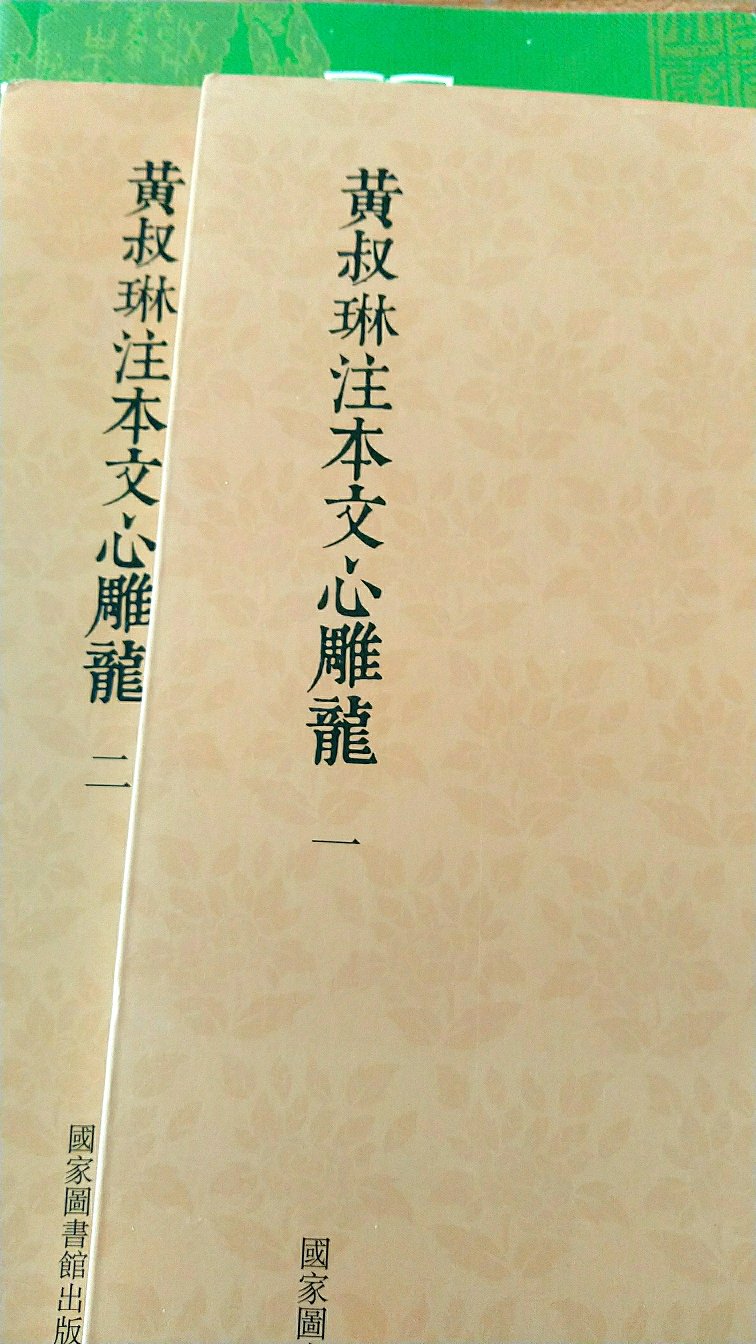 黃叔琳注本文心雕龍 一
國家圖
黃叔琳注本文心雕龍 二
國家圖書館出版